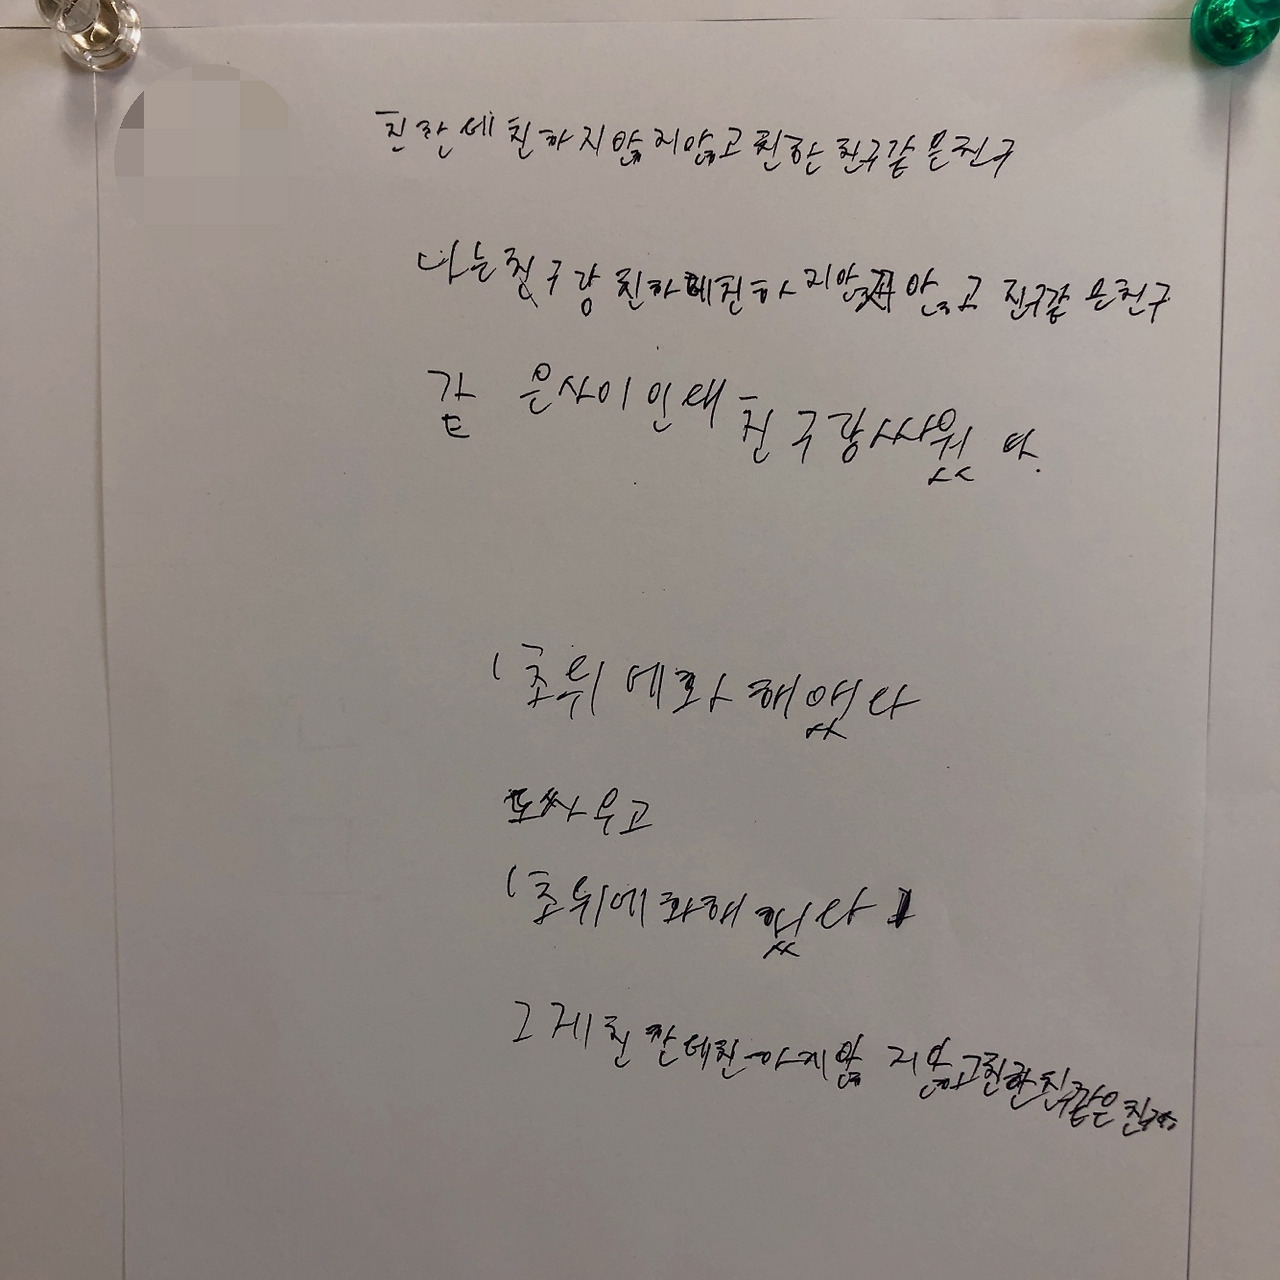 친한데 친하지않지않고 친한 친구같은친구
나는친구랑 친하데친하지않지않고 친구같은친구
같은사이인데 친구랑싸웠다.
1초뒤에화해었다
또싸우고
1초뒤에화해했다
그게친한데친하지않지않고친한친구같은친구